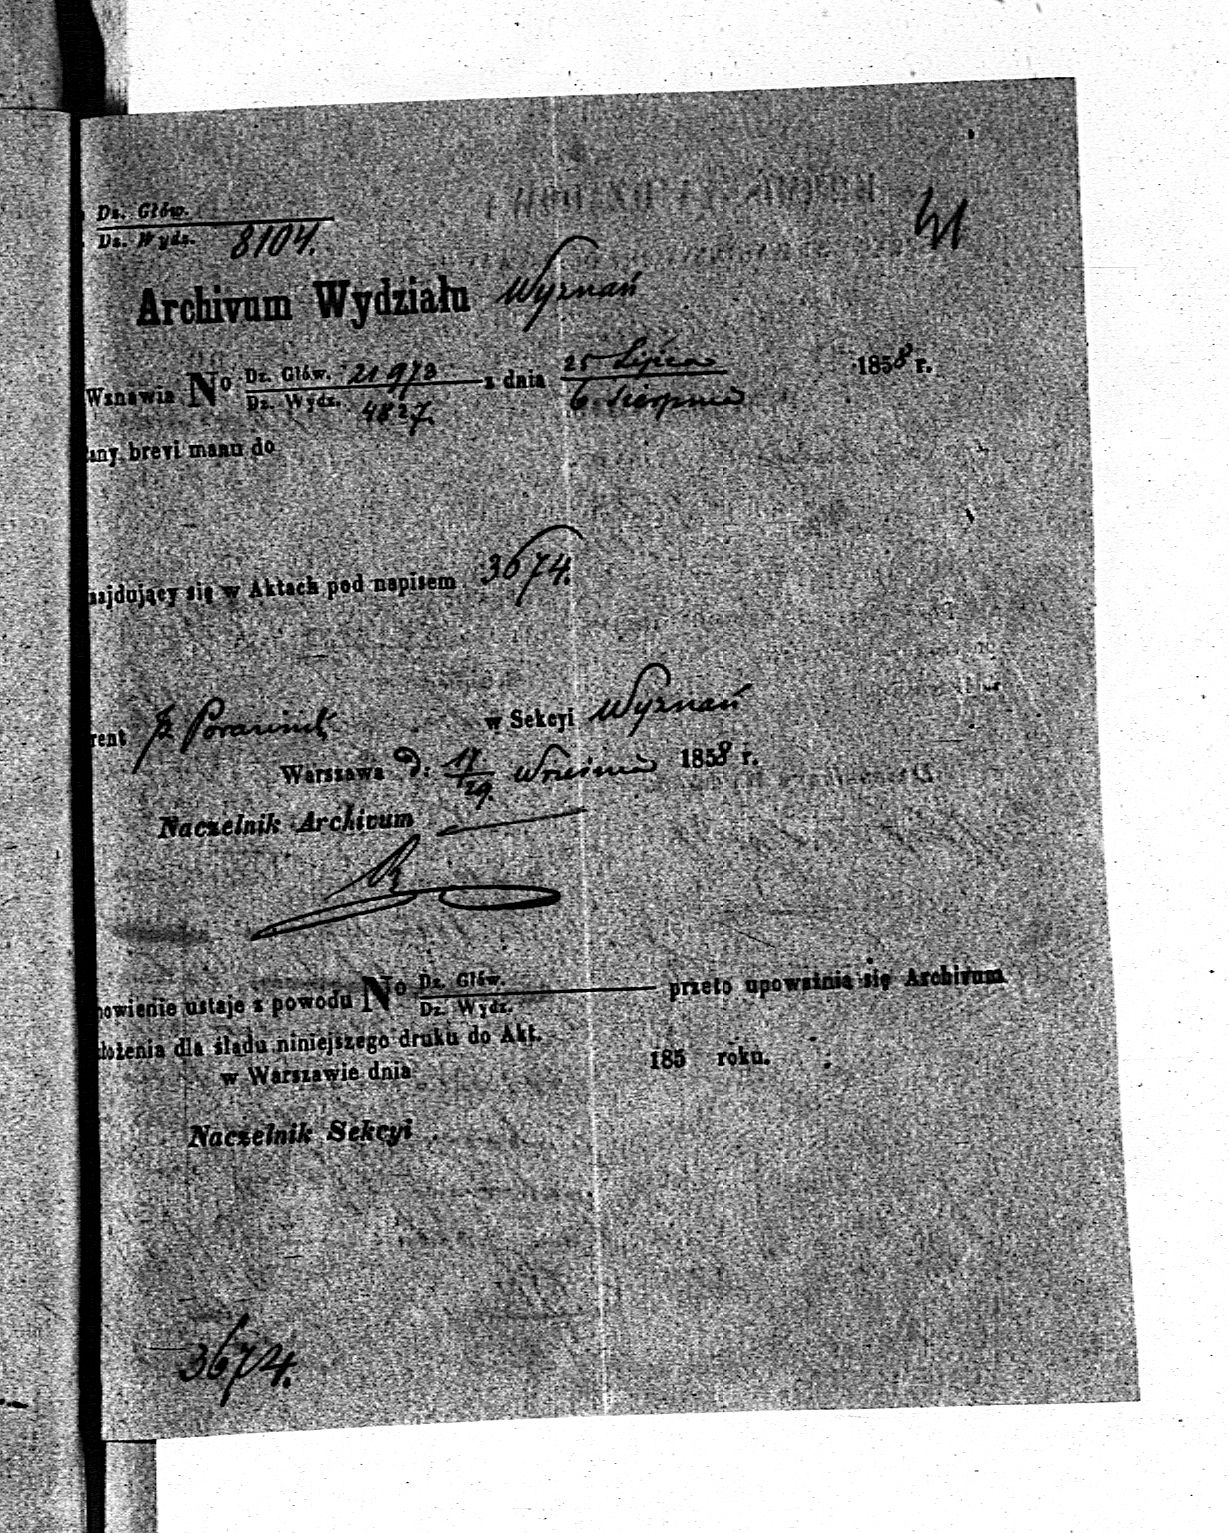 Dz. Głów.
Dz. Wydz. 8104.
Archivum Wydziału Wyznań
Wznawia No Dz. Głów. 21973 z dnia 25 Lipca 1858 r.
Dz. Wydz. 4827. 6 Sierpnia
any brevi manu do
ajdujący się w Aktach pod napisem 3674.
rent w Sekcyi Wyznań
Warszawa d: 17/29. Września 1858 r.
Naczelnik Archivum
nowienie ustaje z powodu No Dz. Głów. przeto upoważnia się Archivum
Dz. Wydz.
łożenia dla śladu niniejszego druku do Akt.
w Warszawie dnia 185 roku.
Naczelnik Sekcyi
3674.